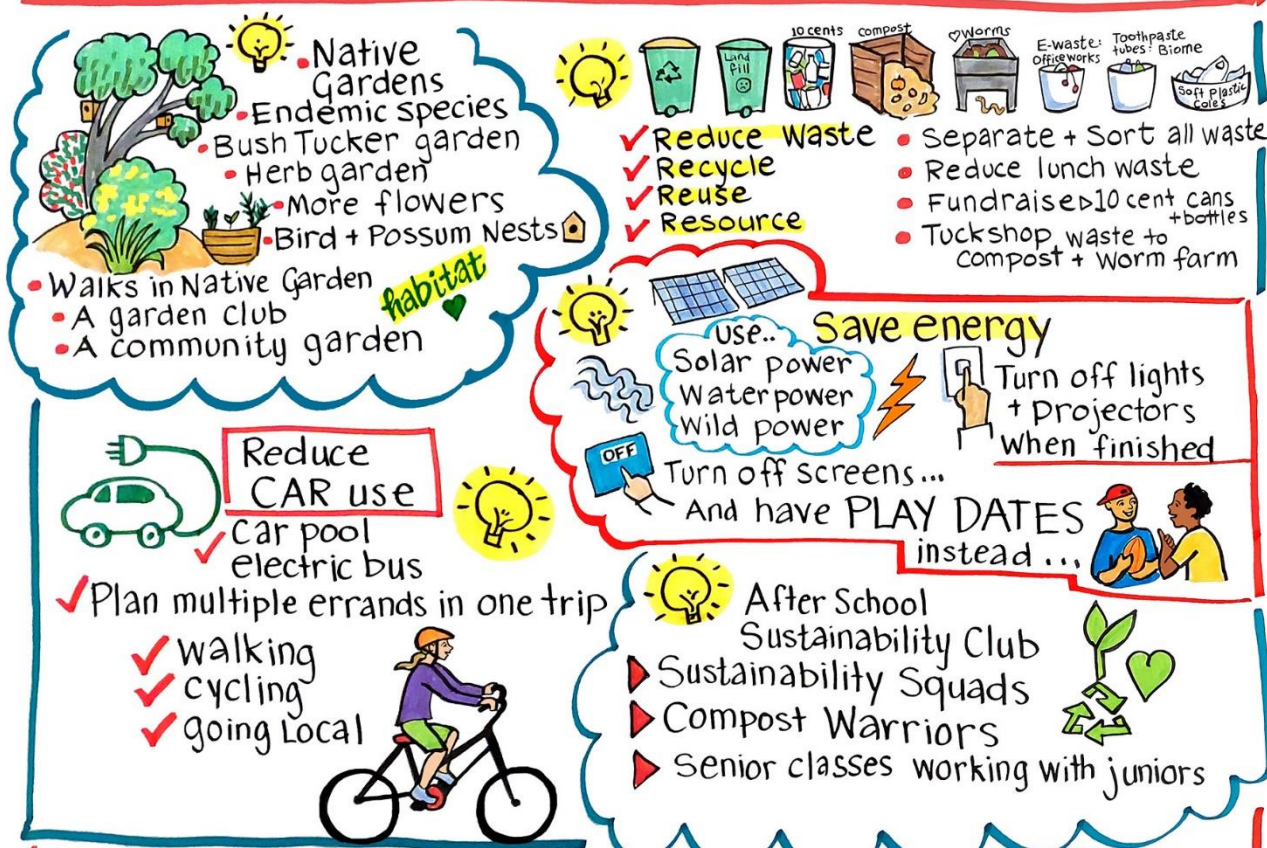 Native
Gardens
Endemic species
Bush Tucker garden
Herb garden
More flowers
Bird + Possum Nests
Walks in Native Garden
A garden club
A community garden
habitat
Land
fill
10 cents
compost
♡Worms
E-waste:
Officeworks
Toothpaste
tubes: Biome
Soft Plastic
Coles
✓ Reduce Waste
✓ Recycle
✓ Reuse
✓ Resource
Separate + Sort all waste
Reduce lunch waste
Fundraise▷10 cent cans
+bottles
Tuckshop waste to
compost + worm farm
Save energy
Use..
Solar power
Water power
Wild power
Turn off lights
+ Projectors
when finished
OFF
Turn off screens...
And have PLAY DATES
instead ...
Reduce
CAR use
✓ Car pool
electric bus
✓ Plan multiple errands in one trip
✓ walking
✓ cycling
✓ going Local
After School
Sustainability Club
Sustainability Squads
Compost Warriors
Senior classes working with juniors